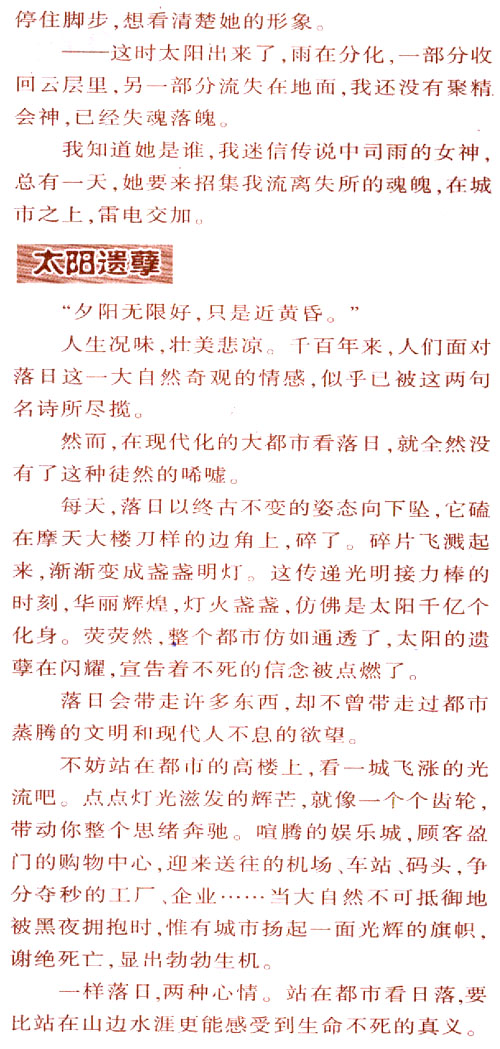 停住脚步,想看清楚她的形象。
——这时太阳出来了,雨在分化,一部分收
回云层里,另一部分流失在地面,我还没有聚精
会神,已经失魂落魄。
我知道她是谁,我迷信传说中司雨的女神,
总有一天,她要来招集我流离失所的魂魄,在城
市之上,雷电交加。
太阳遗孽
“夕阳无限好,只是近黄昏。”
人生况味,壮美悲凉。千百年来,人们面对
落日这一大自然奇观的情感,似乎已被这两句
名诗所尽揽。
然而,在现代化的大都市看落日,就全然没
有了这种徒然的唏嘘。
每天,落日以终古不变的姿态向下坠,它磕
在摩天大楼刀样的边角上,碎了。碎片飞溅起
来,渐渐变成盏盏明灯。这传递光明接力棒的
时刻,华丽辉煌,灯火盏盏,仿佛是太阳千亿个
化身。荧荧然,整个都市仿如通透了,太阳的遗
孽在闪耀,宣告着不死的信念被点燃了。
落日会带走许多东西,却不曾带走过都市
蒸腾的文明和现代人不息的欲望。
不妨站在都市的高楼上,看一城飞涨的光
流吧。点点灯光滋发的辉芒,就像一个个齿轮,
带动你整个思绪奔驰。喧腾的娱乐城,顾客盈
门的购物中心,迎来送往的机场、车站、码头,争
分夺秒的工厂、企业……当大自然不可抵御地
被黑夜拥抱时,惟有城市扬起一面光辉的旗帜,
谢绝死亡,显出勃勃生机。
一样落日,两种心情。站在都市看日落,要
比站在山边水涯更能感受到生命不死的真义。